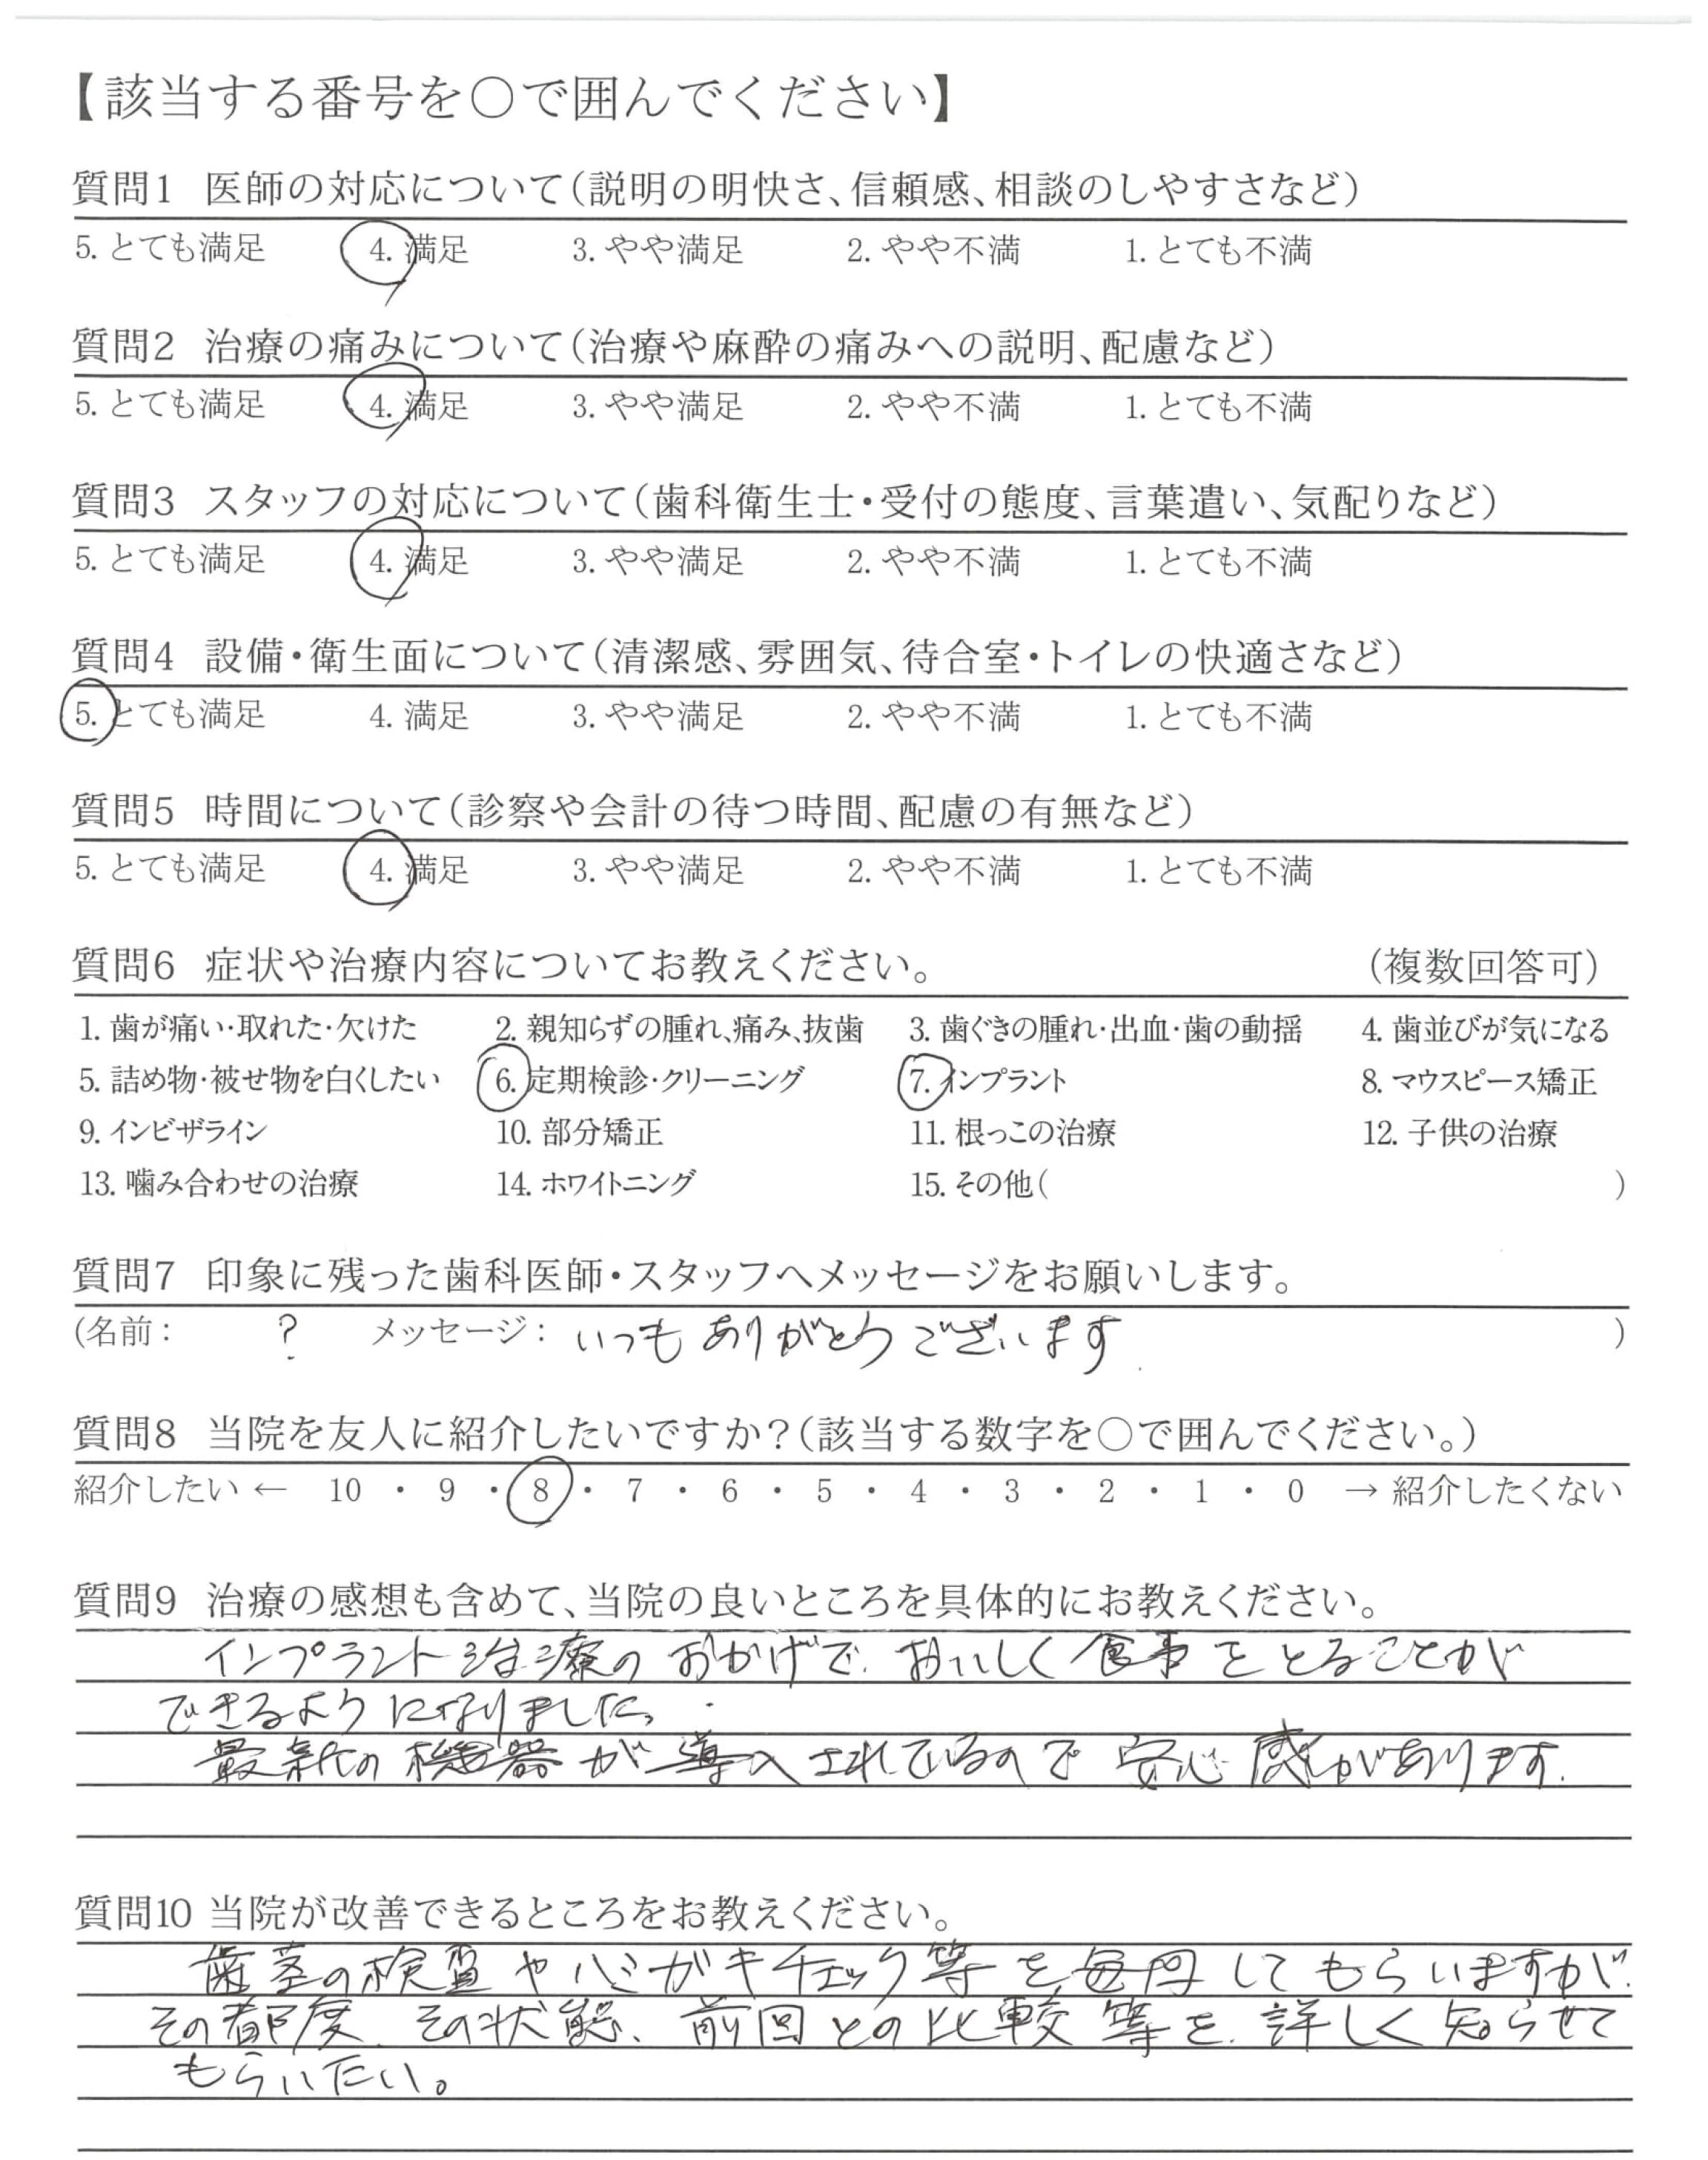 【該当する番号を○で囲んでください】
質問1 医師の対応について(説明の明快さ、信頼感、相談のしやすさなど)
5. とても満足 4. 満足 3. やや満足 2. やや不満 1. とても不満
質問2 治療の痛みについて(治療や麻酔の痛みへの説明、配慮など)
5. とても満足 4. 満足 3. やや満足 2. やや不満 1. とても不満
質問3 スタッフの対応について(歯科衛生士・受付の態度、言葉遣い、気配りなど)
5. とても満足 4. 満足 3. やや満足 2. やや不満 1. とても不満
質問4 設備・衛生面について(清潔感、雰囲気、待合室・トイレの快適さなど)
5. とても満足 4. 満足 3. やや満足 2. やや不満 1. とても不満
質問5 時間について(診察や会計の待つ時間、配慮の有無など)
5. とても満足 4. 満足 3. やや満足 2. やや不満 1. とても不満
質問6 症状や治療内容についてお教えください。 (複数回答可)
1. 歯が痛い・取れた・欠けた 2. 親知らずの腫れ、痛み、抜歯 3. 歯ぐきの腫れ・出血・歯の動揺 4. 歯並びが気になる
5. 詰め物・被せ物を白くしたい 6. 定期検診・クリーニング 7. インプラント 8. マウスピース矯正
9. インビザライン 10. 部分矯正 11. 根っこの治療 12. 子供の治療
13. 噛み合わせの治療 14. ホワイトニング 15. その他( )
質問7 印象に残った歯科医師・スタッフへメッセージをお願いします。
(名前: ? メッセージ: いつもありがとうございます )
質問8 当院を友人に紹介したいですか?(該当する数字を○で囲んでください。)
紹介したい ← 10 ・ 9 ・ 8 ・ 7 ・ 6 ・ 5 ・ 4 ・ 3 ・ 2 ・ 1 ・ 0 → 紹介したくない
質問9 治療の感想も含めて、当院の良いところを具体的にお教えください。
インプラント治療のおかげで、おいしく食事をとることが
できるようになりました。
最新の機器が導入されているので安心感があります.
質問10 当院が改善できるところをお教えください。
歯茎の検査やハミガキチェック等を毎回してもらいますが、
その都度、その状態、前回との比較等を、詳しく知らせて
もらいたい。